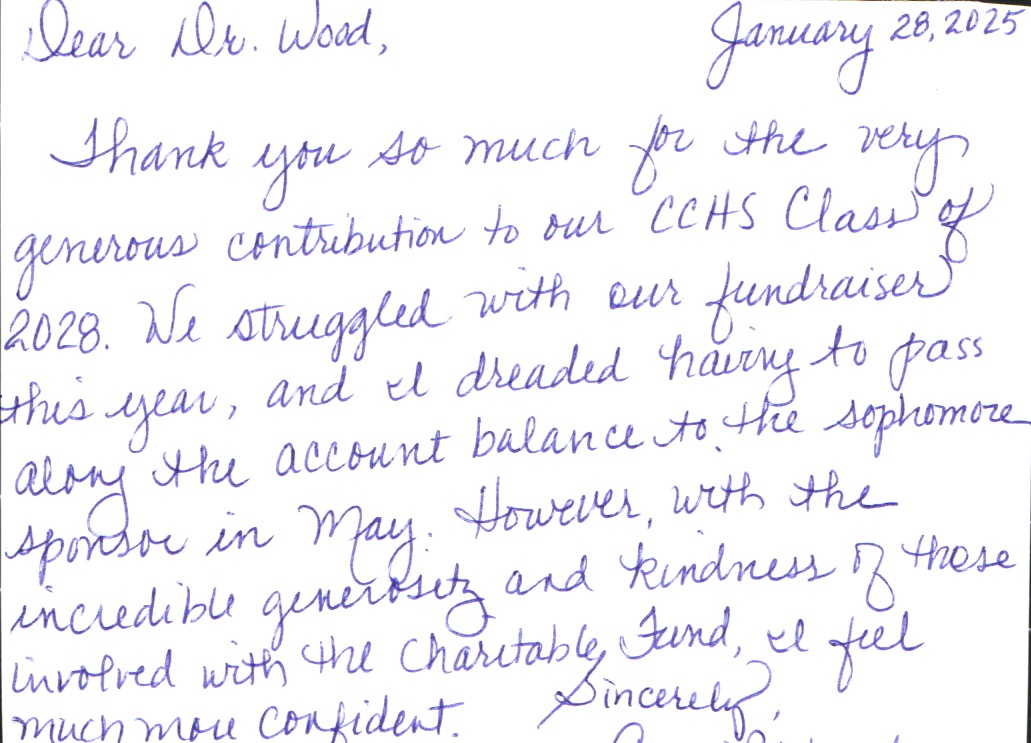 Dear Dr. Wood, January 28, 2025
Thank you so much for the very
generous contribution to our CCHS Class of
2028. We struggled with our fundraiser
this year, and I dreaded having to pass
along the account balance to the sophomore
sponsor in May. However, with the
incredible generosity and kindness of those
involved with the Charitable Fund, I feel
much more confident. Sincerely,